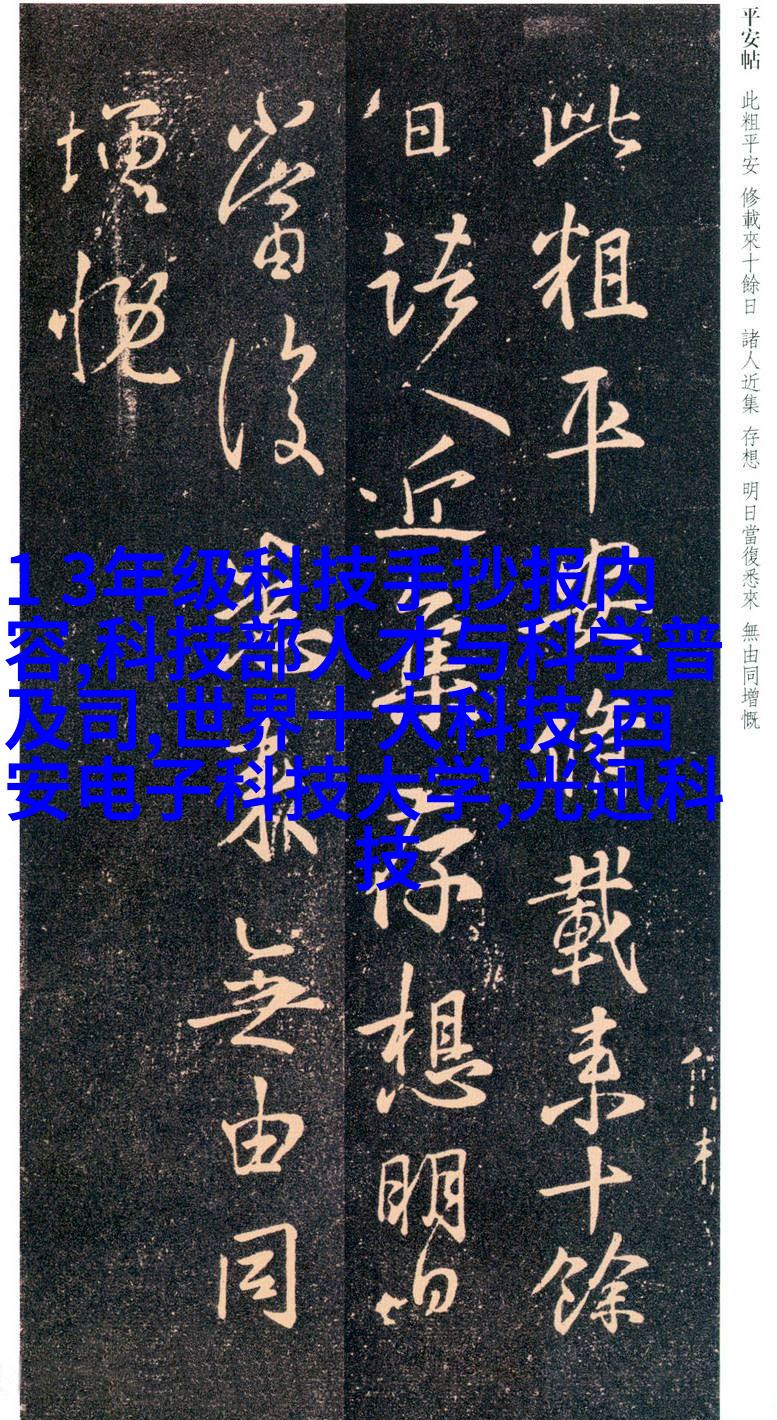 平安帖 此粗平安 修載來十餘日 諸人近集 存想 明日當復悉來 無由同增慨
此粗平安脩載来十餘
日諸人近集存想明日
當復悉来無由同
增慨
1 3年级科技手抄报内
容,科技部人才与科学普
及司,世界十大科技,西
安电子科技大学,光迅科
技